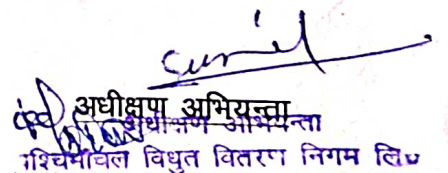 Sunil
अधीक्षण अभियन्ता
अधीक्षण अभियन्ता
पश्चिमांचल विधुत वितरण निगम लि०